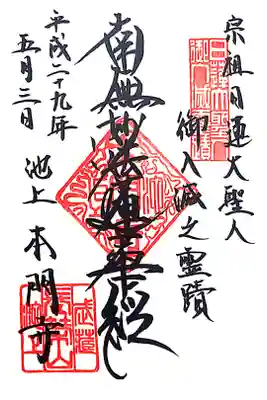 宗祖日蓮大聖人
御入滅之霊蹟
南無妙法蓮華経
平成二十九年
五月三日
池上 本門寺